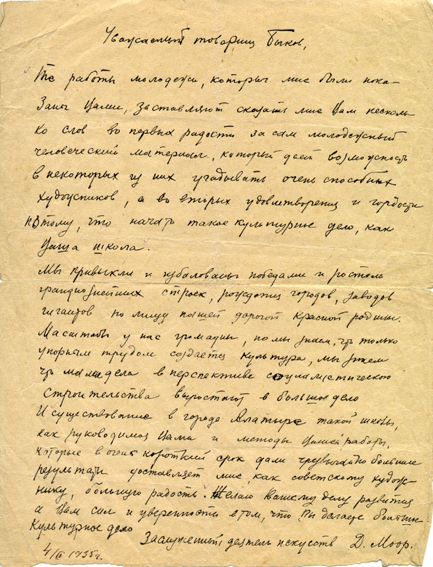 Уважаемый товарищ Быков,
Те работы молодежи, которые мне были пока-
заны Вами, заставляют сказать мне Вам несколь-
ко слов во первых радости за сам молодежный
человеческий материал, который дает возможность
в некоторых из них угадывать очень способных
художников, а во вторых удовлетворения и гордости
потому, что начать такое культурное дело, как
Ваша школа.
Мы привыкли и избалованы победами и ростом
грандиознейших строек, рождения городов, заводов
гигантов по лицу нашей дорогой красной родины.
Масштабы у нас громадны, но мы знаем, что только
упорным трудом создается культура, мы знаем
что малые дела в перспективе социалистического
строительства вырастают в большое дело
И существование в городе Алатыре такой школы,
как руководимая Вами и методы Вашей работы,
которые в очень короткий срок дали чрезвычайно большие
результаты доставляет мне, как советскому худож-
нику, большую радость. Желаю вашему делу развития
а Вам сил и уверенности в том, что Вы делаете большое
культурное дело
Заслуженный деятель искусств Д. Моор.
4/II 1935 г.